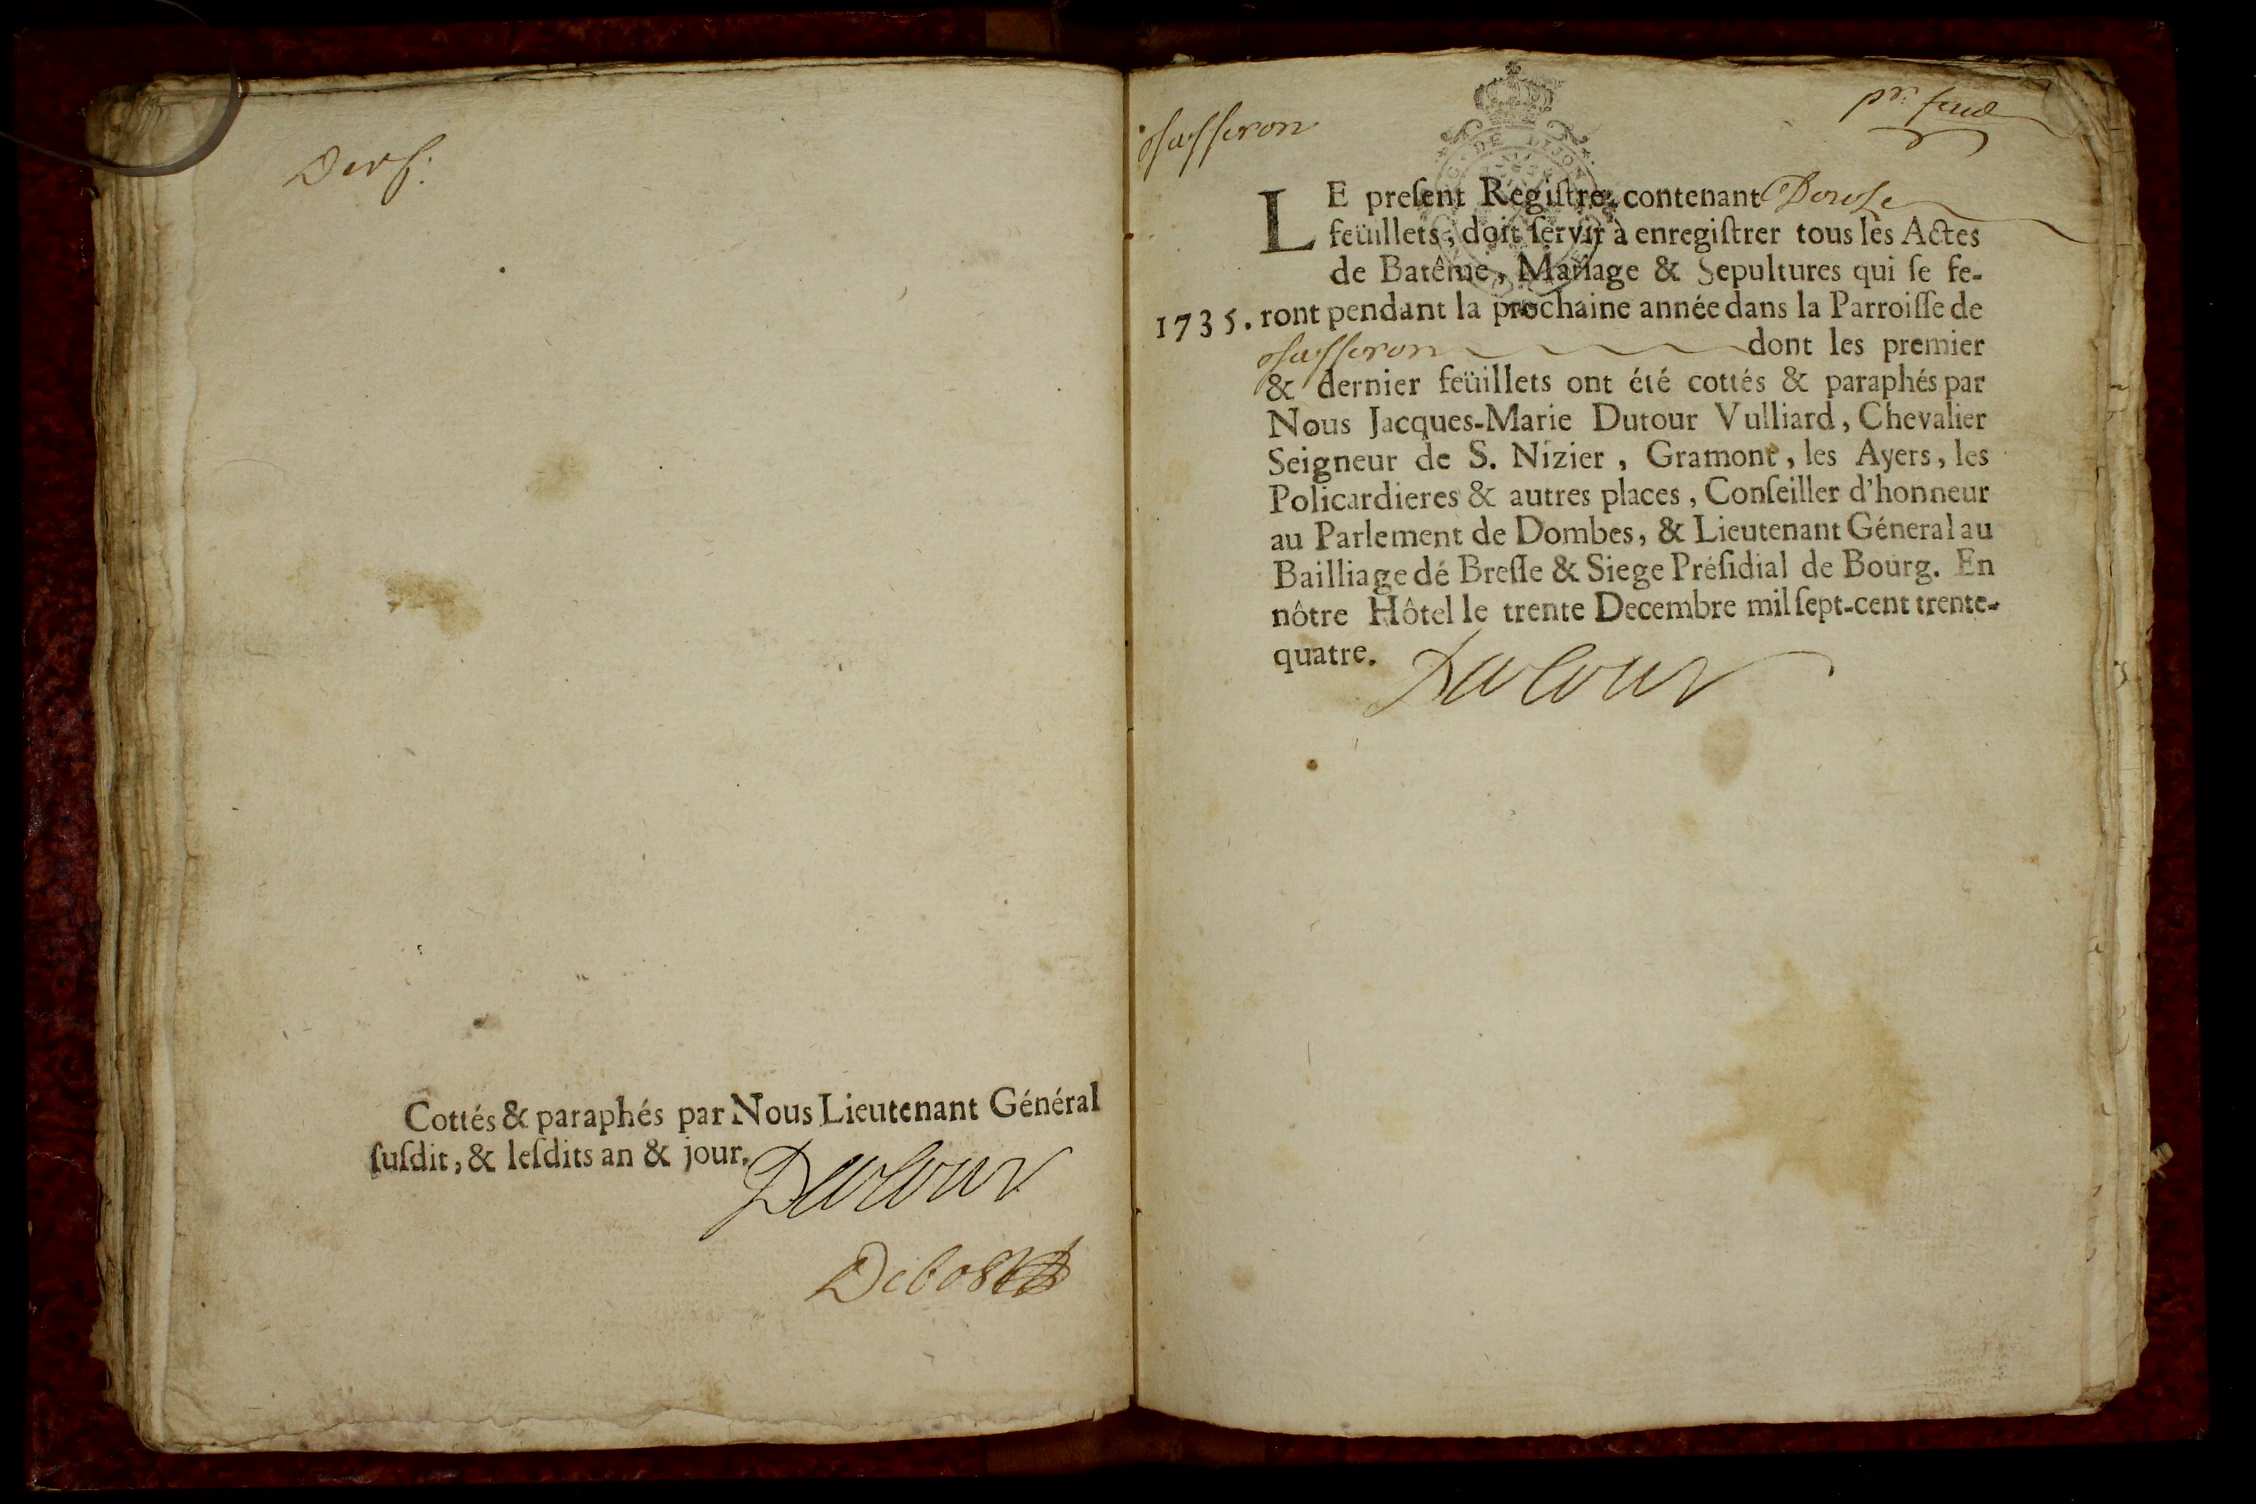 Cottés & paraphés par Nous Lieutenant Général
ſuſdit, & leſdits an & jour.
Dutour
pr. feuil
LE preſent Regiſtre, contenant Douſe
feüillets, doit ſervir à enregiſtrer tous les Actes
de Batême, Mariage & Sepultures qui ſe fe-
1735. ront pendant la prochaine année dans la Parroiſſe de
dont les premier
& dernier feüillets ont été cottés & paraphés par
Nous Jacques-Marie Dutour Vulliard, Chevalier
Seigneur de S. Nizier, Gramont, les Ayers, les
Policardieres & autres places, Conſeiller d'honneur
au Parlement de Dombes, & Lieutenant Géneral au
Bailliage dé Breſſe & Siege Préſidial de Bourg. En
nôtre Hôtel le trente Decembre mil ſept-cent trente-
quatre.
Dutour